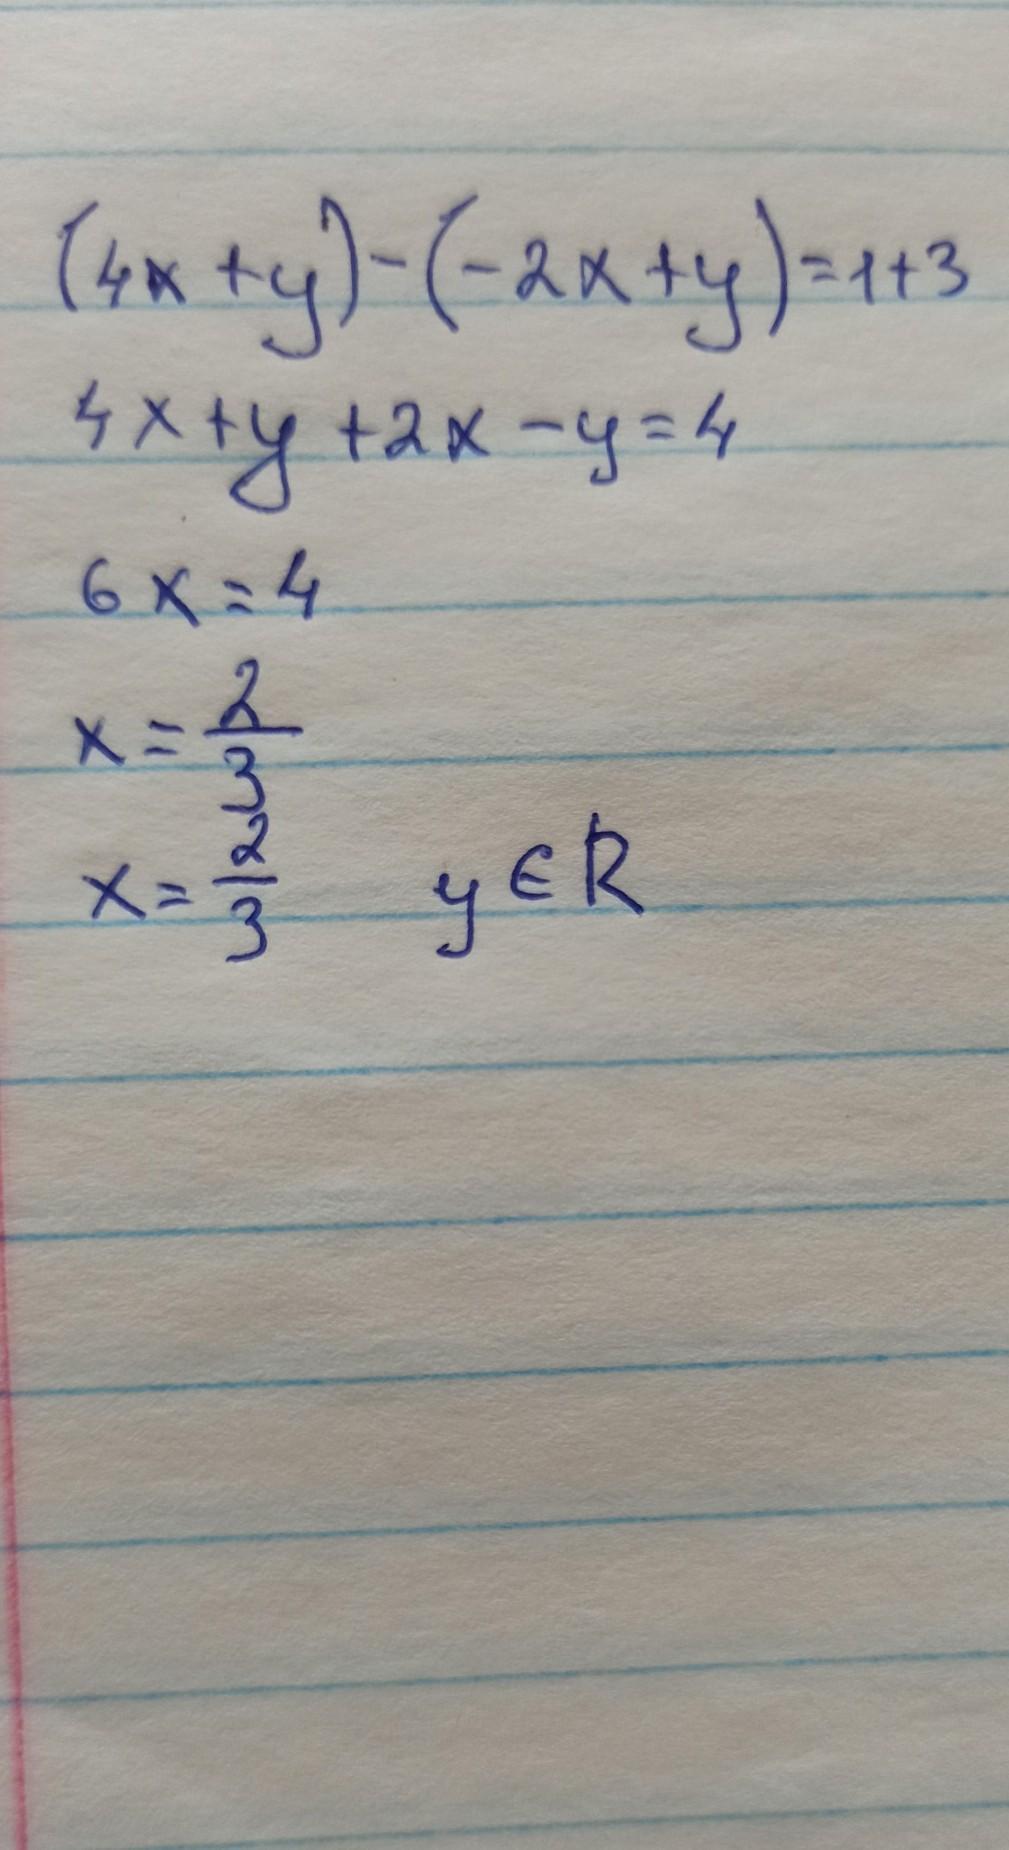 (4x+y)-(-2x+y)=1+3
4x+y+2x-y=4
6x=4
x=2/3
x=2/3 y∈R